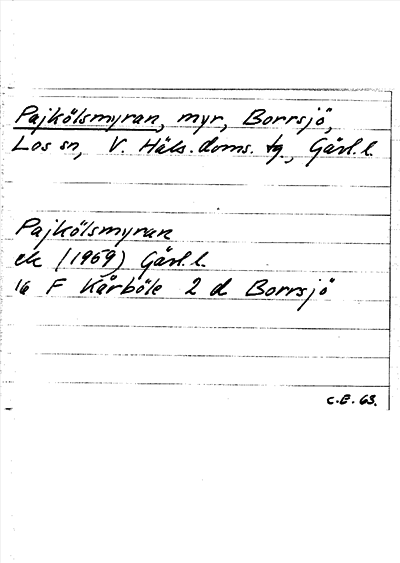 Pajkölsmyran, myr, Borrsjö,
Los sn, V. Häls. doms. tg., Gävl. l.
Pajkölsmyran
ek (1959) Gävl. l.
16 F Kårböle 2 d Borrsjö
C.E. 63.